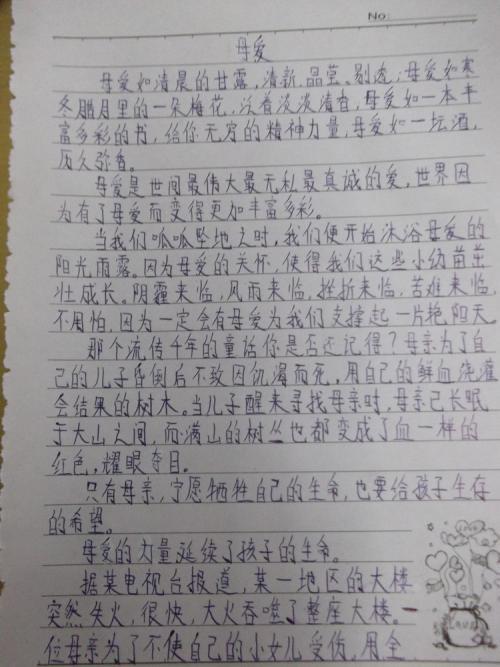 No:
母爱
母爱如清晨的甘露，清新、晶莹、剔透；母爱如寒
冬腊月里的一朵梅花，沁香淡淡清香，母爱如一本丰
富多彩的书，给你无穷的精神力量，母爱如一坛酒，
历久弥香。
母爱是世间最伟大最无私最真诚的爱，世界因
为有了母爱而变得更加丰富多彩。
当我们呱呱坠地之时，我们便开始沐浴母爱的
阳光雨露。因为母爱的关怀，使得我们这些小幼苗茁
壮成长。阴霾来临，风雨来临，挫折来临，苦难来临，
不用怕，因为一定会有母爱为我们支撑起一片艳阳天。
那个流传千年的童话你是否还记得？母亲为了自
己的儿子昏倒后不致因饥渴而死，用自己的鲜血浇灌
会结果的树木。当儿子醒来寻找母亲时，母亲已长眠
于大山之间，而满山的树丛也都变成了血一样的
红色，耀眼夺目。
只有母亲，宁愿牺牲自己的生命，也要给孩子生存
的希望。
母爱的力量延续了孩子的生命。
据某电视台报道，某一地区的大楼
突然失火，很快，大火吞噬了整座大楼。一
位母亲为了不使自己的小女儿受伤，用全